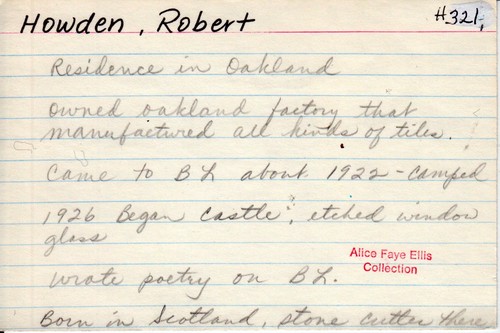 Howden, Robert
H321,
Residence in Oakland
owned oakland factory that
manufactured all kinds of tiles.
Came to B L about 1922 - camped
1926 Began castle", etched window
glass
Alice Faye Ellis
Collection
wrote poetry on B L.
Born in Scotland, stone cutter there